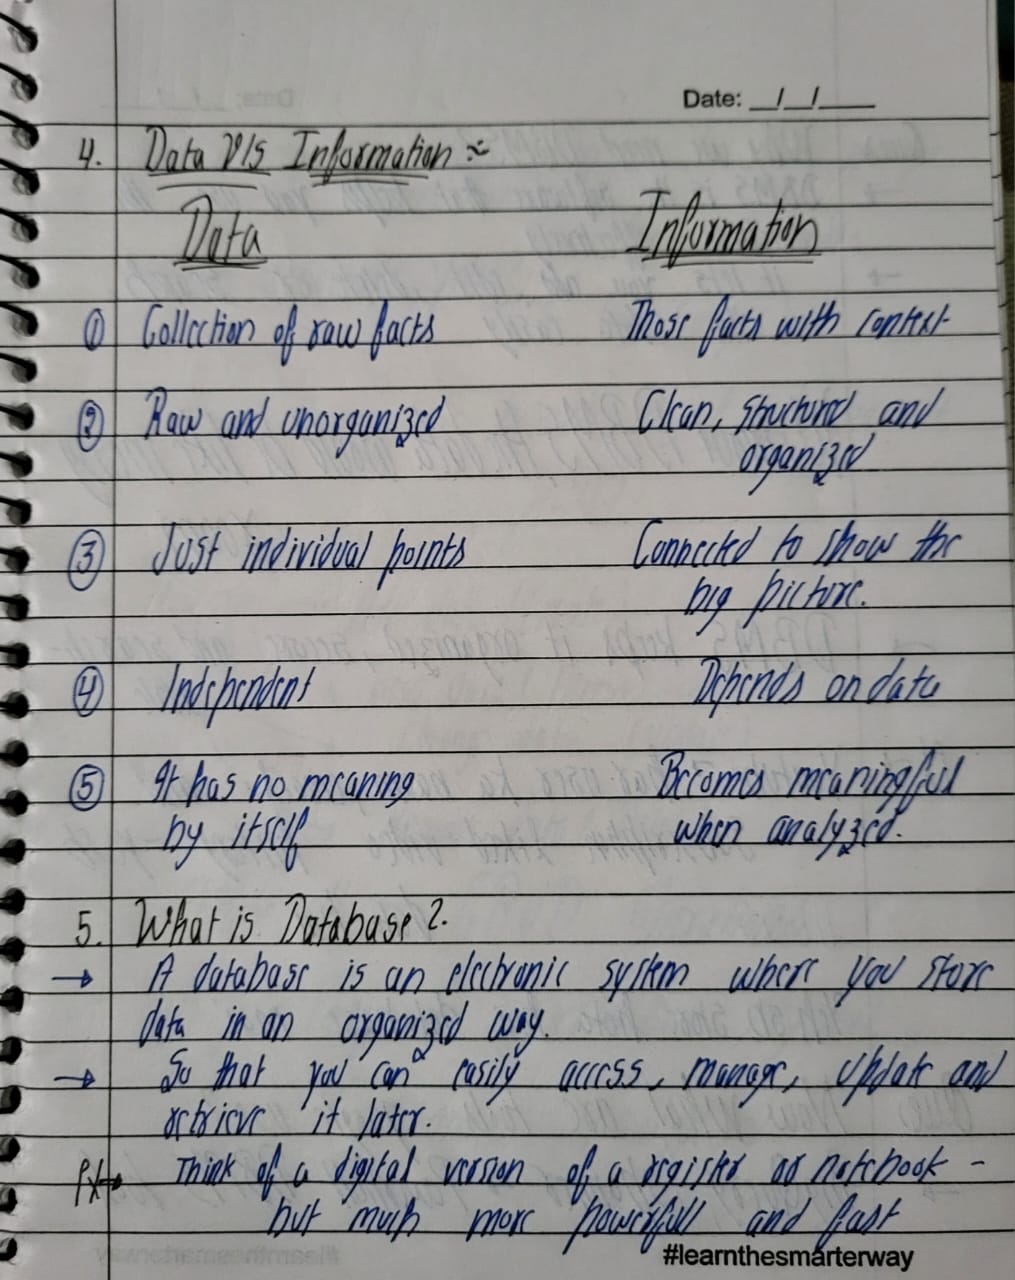 Date: __/__/____
4. Data V/s Information :-
Data Information
① Collection of raw facts Those facts with context
② Raw and unorganized Clean, Structured and
organized
③ Just individual points Connected to show the
big picture.
④ Independent Depends on data
⑤ It has no meaning Becomes meaningful
by itself when analyzed.
5. What is Database?
→ A database is an electronic system where you store
data in an organized way.
→ So that you can easily access, manage, update and
retrieve it later.
Ex→ Think of a digital version of a register or notebook -
but much more powerfull and fast
#learnthesmarterway